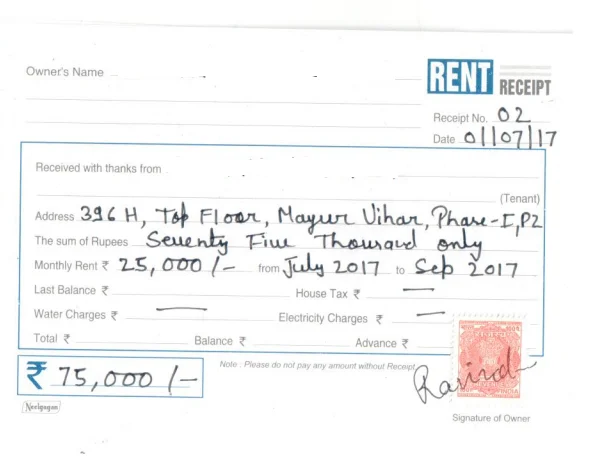 RENT RECEIPT
Owner's Name
Receipt No. 02
Date 01/07/17
Received with thanks from
(Tenant)
Address 396 H, Top Floor, Mayur Vihar, Phase-I, P2
The sum of Rupees Seventy Five Thousand only
Monthly Rent ₹ 25,000/- from July 2017 to Sep 2017
Last Balance ₹ — House Tax ₹ —
Water Charges ₹ — Electricity Charges ₹ —
Total ₹ Balance ₹ Advance ₹
₹ 75,000/-
Note : Please do not pay any amount without Receipt
Neelgagan
Signature of Owner